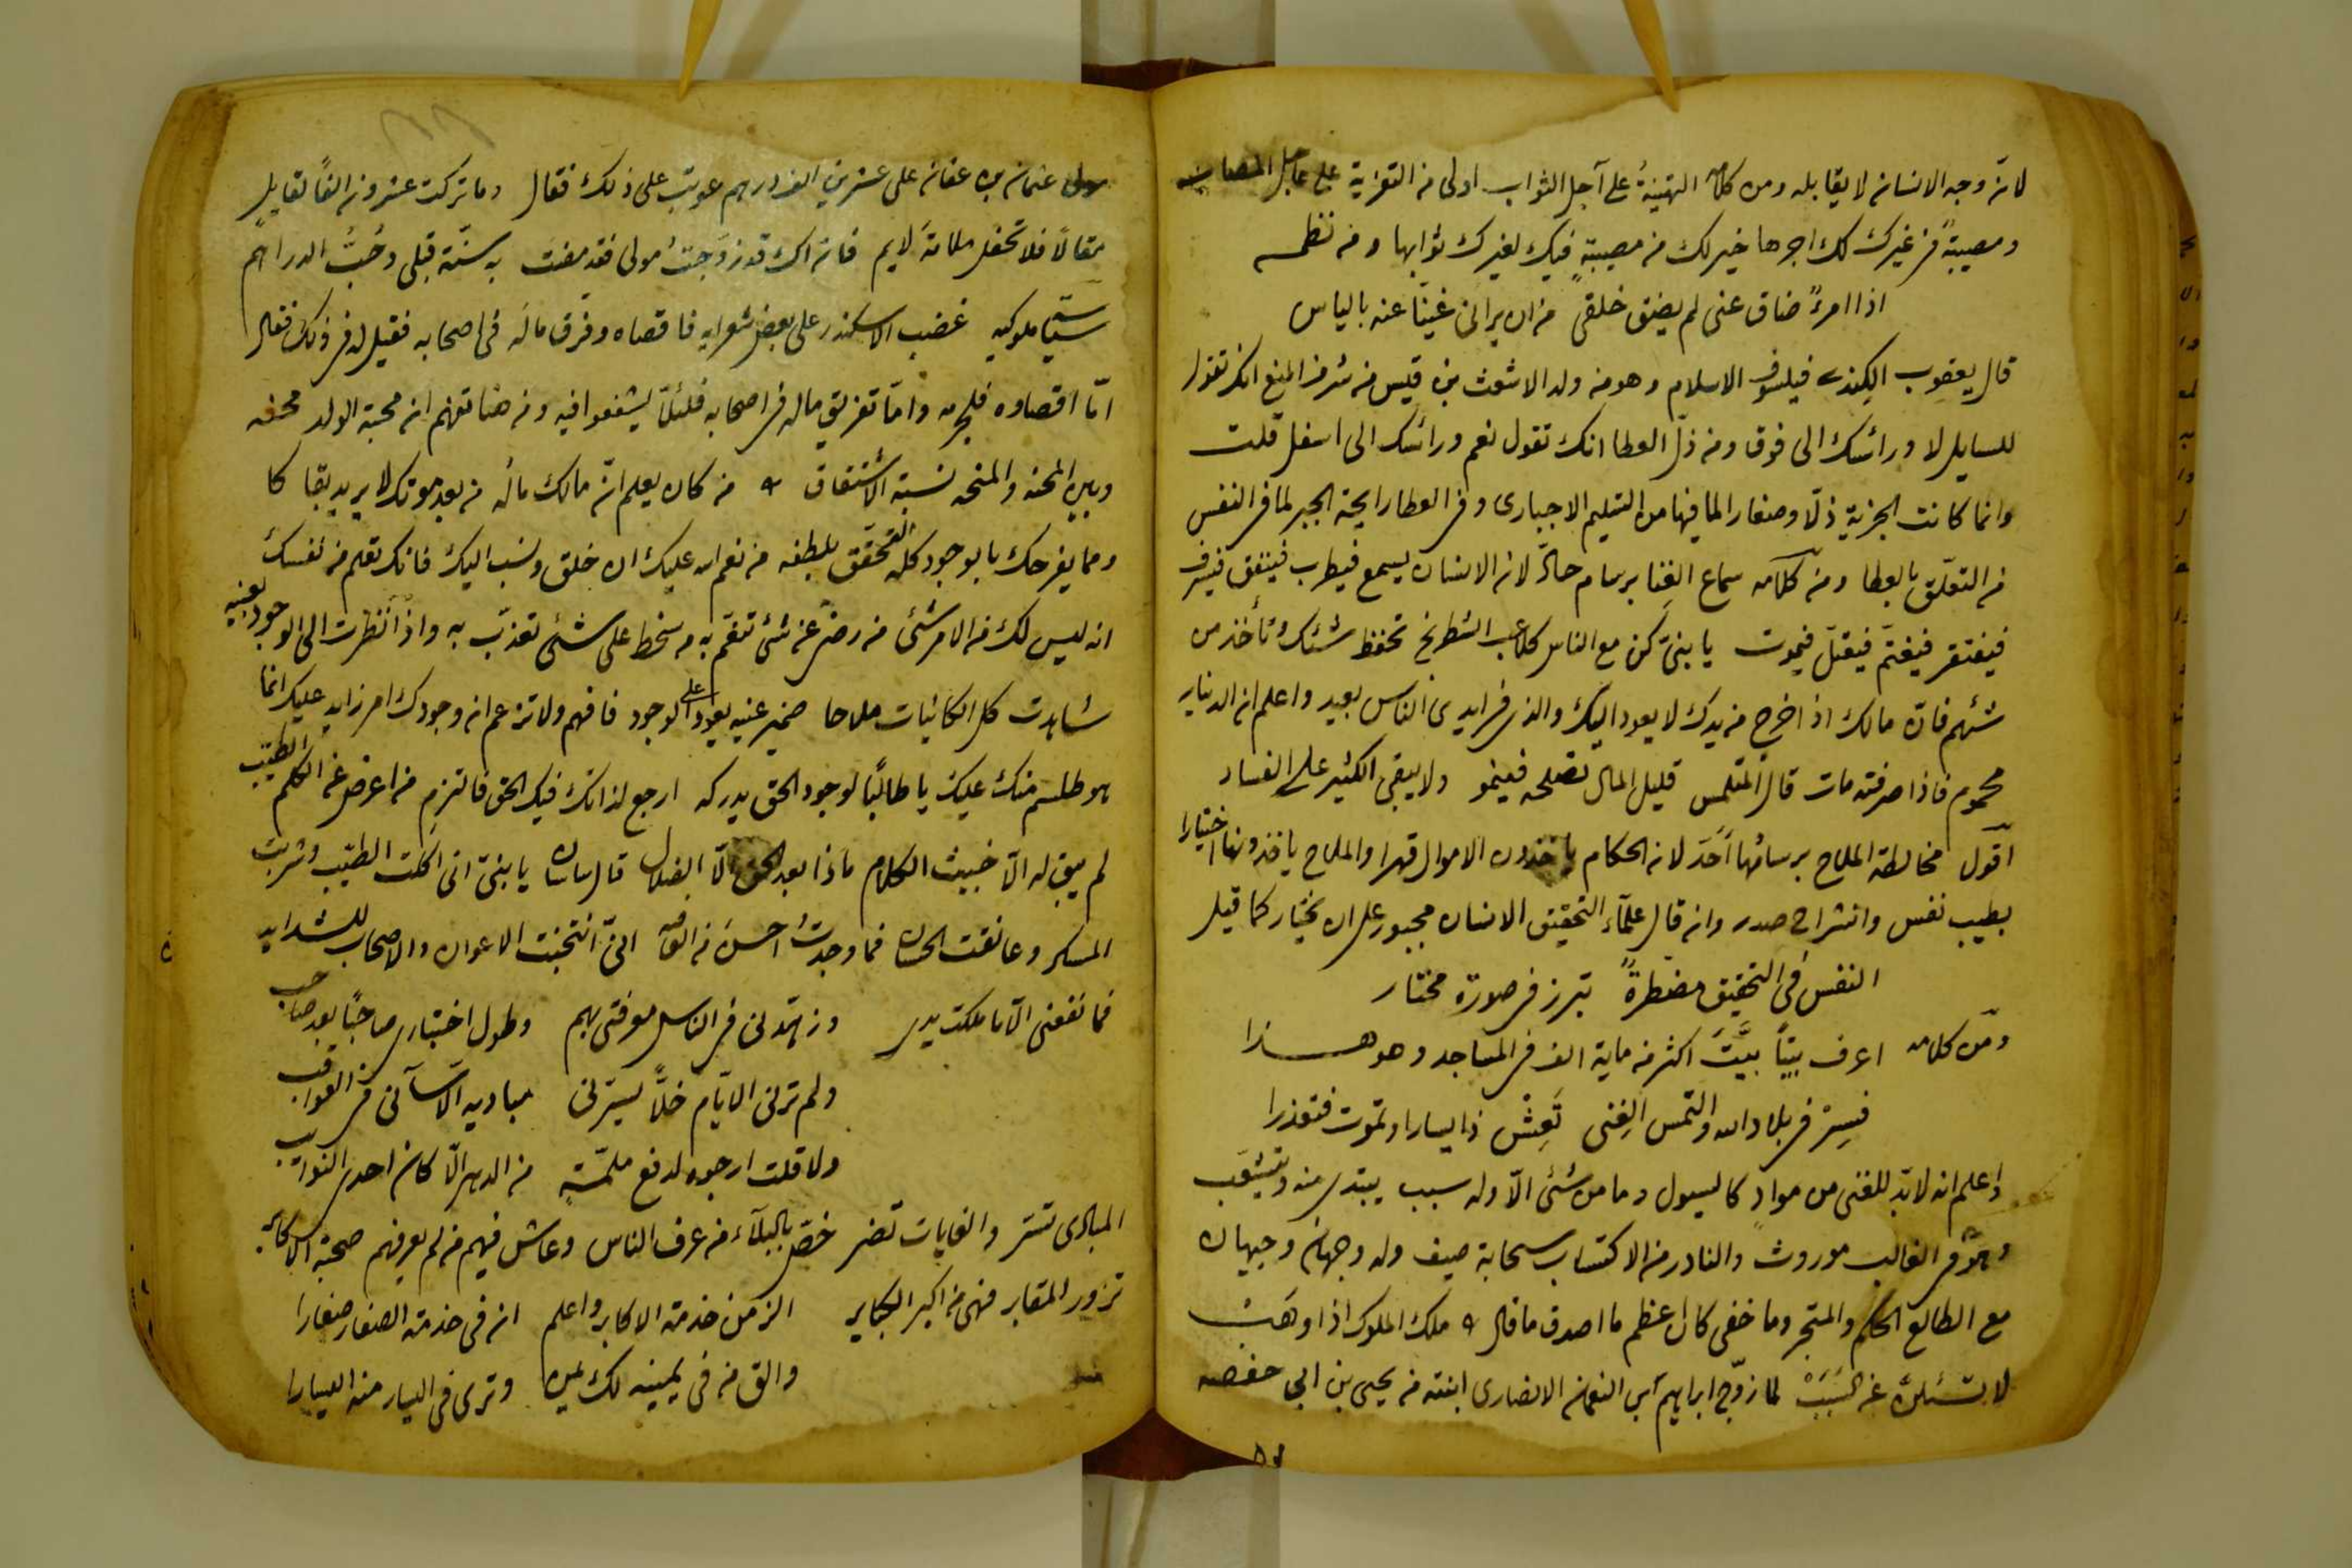 لانه وجه الانسان لا يقابله ومن كلامه التهنيةُ على آجل الثواب اولى من التعزية على عاجل المصاب
ومصيبةً فى غيرك لك اجرها خير لك من مصيبةٍ فيك لغيرك ثوابها ومن نظمه
اذا امرءً ضاق عنى لم يضق خلقى من ان يرانى غنيًّا عنه بالياس
قال يعقوب الكِندى فيلسوف الاسلام وهو من ولد الاشعث بن قيس من شرف المنع انك تقول
للسايل لا ورائسك الى فوق ومن ذل العطا انك تقول نعم ورائسك الى اسفل قلت
وانما كانت الجزية ذلًّا وصغارا لما فيها من التسليم الاجبارى وفى العطا رايحة الجبر لما فى النفس
من التعلّق بالعطا ومن كلامه سماع الغِنا برسام حادّ لان الانسان يسمع فيطرب فينفق فيسرف
فيفتقر فيغتمّ فيعتلّ فيموت يا بنىّ كن مع الناس كلاعب الشطرنج تحفظ شئك وتأخذ من
شئهم فان مالك اذا خرج من يدك لا يعود اليك والذى فى ايدى الناس بعيد واعلم ان الدينار
محموم فاذا صرفته مات قال المتلمس قليل المال تصلحه فينمو ولا يبقى الكثير على الفساد
اقول مخالطة الملاح برسامها أحَدّ لان الحكام ياخذون الاموال قهرا والملاح ياخذونها اختيارا
بطيب نفس وانشراح صدر وان قال علمآء التحقيق الانسان مجبور على ان يختار كما قيل
النفس فى التحقيق مضطرةً تبرز فى صورة مختار
ومن كلامه اعرف بيتًا بيَّتَ اكثر من ماية الف فى المساجد وهو هـــذا
فسِر فى بلاد الله والتمس الغِنى تَعِشْ ذا يسار او تموت فتعذرا
واعلم انه لابدّ للغنى من موادّ كالسيول وما من شئ الّا وله سبب يبتدى منه ويتشعّب
وهو فى الغالب موروث والنادر من الاكتساب سحابة صيف وله وجهان وجيهان
مع الطالع الحكم والمتجر وما خفى كان اعظم ما اصدق ما قال ملك الملوك اذا وهَبْ
لا تسئلنّ عن السَبَبْ لما زوّج ابراهيم بن النعمان الانصارى ابنته من يحيى بن ابى حفصه
مولى عثمان بن عفان على عشرين الف درهم عوتب على ذلك فقال وما تركت عشرون الفًا لقايل
مقالًا فلا تحفل ملامةَ لايم فان اك قد زوّجتُ مولى فقد مضت به سنّة قبلى وحُبُّ الدراهم
سياسة ملوكيه غضب الاسكندر على بعض شعرايه فاقصاه وفرق مالَه فى اصحابه فقيل له فى ذلك فقال
امّا اقصاوه فلجرمه وامّا تفريق ماله فى اصحابه فلئلّا يشفعوا فيه ومن هنا تفهم ان محبة الولد محنه
وبين المحنه والمنحه نسبة الاشتقاق من كان يعلم انّ مالك مالُه من بعد موتك لا يريد بقاكا
ومما يفرحك بالوجود كله التحقّق بلطفه من نعم الله عليك ان خلق ونسب اليك فانك تعلم من نفسك
انه ليس لك من الامر شئ من رضى عن شئ تنعّم به من سخط على شئ تعذّب به واذا نظرت الى الوجود بعينه
شاهدت كل الكائنات ملاحا ضمير عينه يعود على الوجود فافهم ولا تزعم ان وجودك امر زايد عليك انما
هو طلسم منك عليك يا طالبًا لوجود الحق يدركه ارجع لذاتك فيك الحق فالتزم من اعرض عن الكلم الطيّب
لم يبق له الّا خبيث الكلام ماذا بعد الحق الّا الضلال قال ساسان يا بنىّ انى اكلت الطيّب وشربت
المسكر وعانقت الحسان فما وجدتُ احسنَ من العافيه انّى انتخبت الاعوان والاصحاب للشدايد
فما نفعنى الّا ما ملكت يدى وزهّدنى فى الناس معرفتى بهم وطول اختبارى صاحبًا بعد صاحب
ولم ترنى الايّام خلًّا يسرّنى مباديه الّا سآنى فى العواقب
ولا قلت ارجوه لدفع ملمّةٍ من الدهر الّا كان احدى النوايب
المبادى تسرّ والغايات تضر خصّ بالبلآء من عرف الناس وعاش فيهم من لم يعرفهم صحبة الاكابر
تزور المقابر فهى من اكبر الكباير الزمن خدمة الاكابر واعلم ان فى خدمة الصغار صغارا
والق من فى يمينه لك يمن وترى فى اليسار منه اليسارا